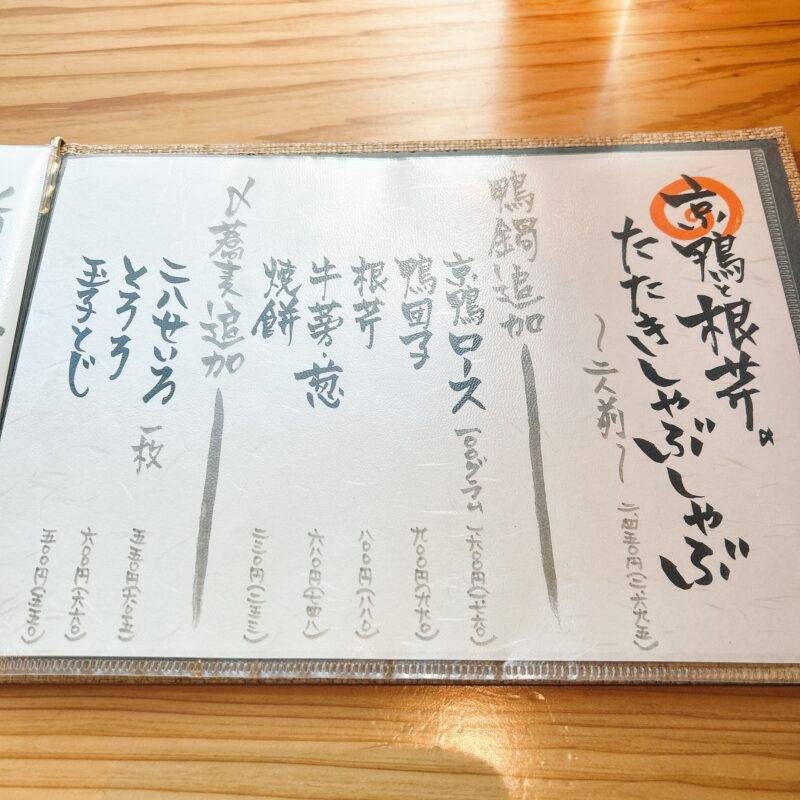 京鴨と根芹の
たたきしゃぶしゃぶ
〜二人前〜
二、四五〇円(二、六九五)
鴨鍋追加
京鴨ロース 一〇〇グラム 一、六〇〇円(一、七六〇)
鴨団子 九〇〇円(九九〇)
根芹 八〇〇円(八八〇)
牛蒡・葱 六八〇円(七四八)
焼餅 二三〇円(二五三)
〆蕎麦追加
二八せいろ 一枚 五五〇円(六〇五)
とろろ 六〇〇円(六六〇)
玉子とじ 五〇〇円(五五〇)